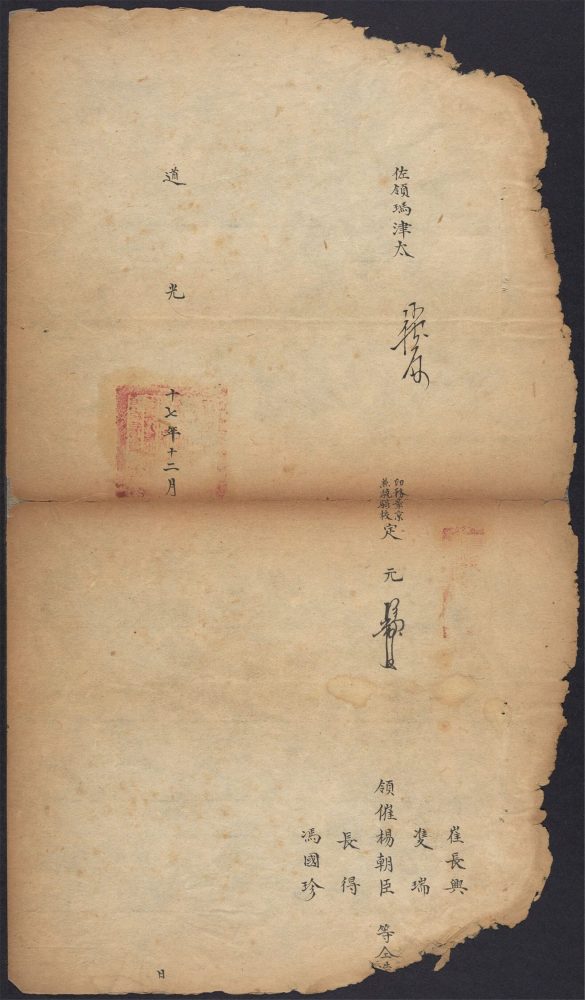 佐領瑪津太
印務章京
兼驍騎校
定元
崔長興
雙瑞
領催楊朝臣 等仝
長得
馮國珍
道光十七年十二月 日